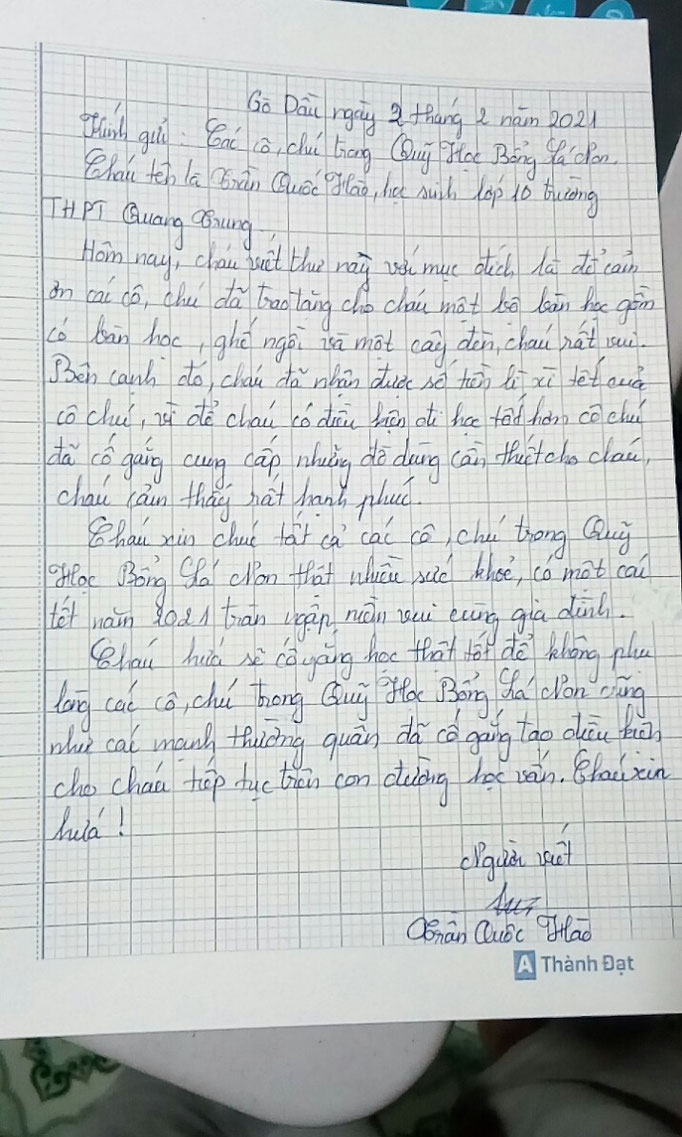 Gò Dầu ngày 2 tháng 2 năm 2021
Kính gửi: Các cô, chú trong Quỹ Học Bổng Lá Non.
Cháu tên là Trần Quốc Hào, học sinh lớp 10 trường
THPT Quang Trung
Hôm nay, cháu viết thư này với mục đích là để cảm
ơn các cô, chú đã trao tặng cho cháu một bộ bàn học gồm
có bàn học, ghế ngồi và một cây đèn, cháu rất vui.
Bên cạnh đó, cháu đã nhận được số tiền lì xì tết của
cô chú, vì để cháu có điều kiện đi học tốt hơn cô chú
đã cố gắng cung cấp những đồ dùng cần thiết cho cháu,
cháu cảm thấy rất hạnh phúc.
Cháu xin chúc tất cả các cô, chú trong Quỹ
Học Bổng Lá Non thật nhiều sức khoẻ, có một cái
tết năm 2021 tràn ngập niềm vui cùng gia đình.
Cháu hứa sẽ cố gắng học thật tốt để không phụ
lòng các cô, chú trong Quỹ Học Bổng Lá Non cũng
như các mạnh thường quân đã cố gắng tạo điều kiện
cho cháu tiếp tục trên con đường học vấn. Cháu xin
hứa!
Người viết
Trần Quốc Hào
A Thành Đạt